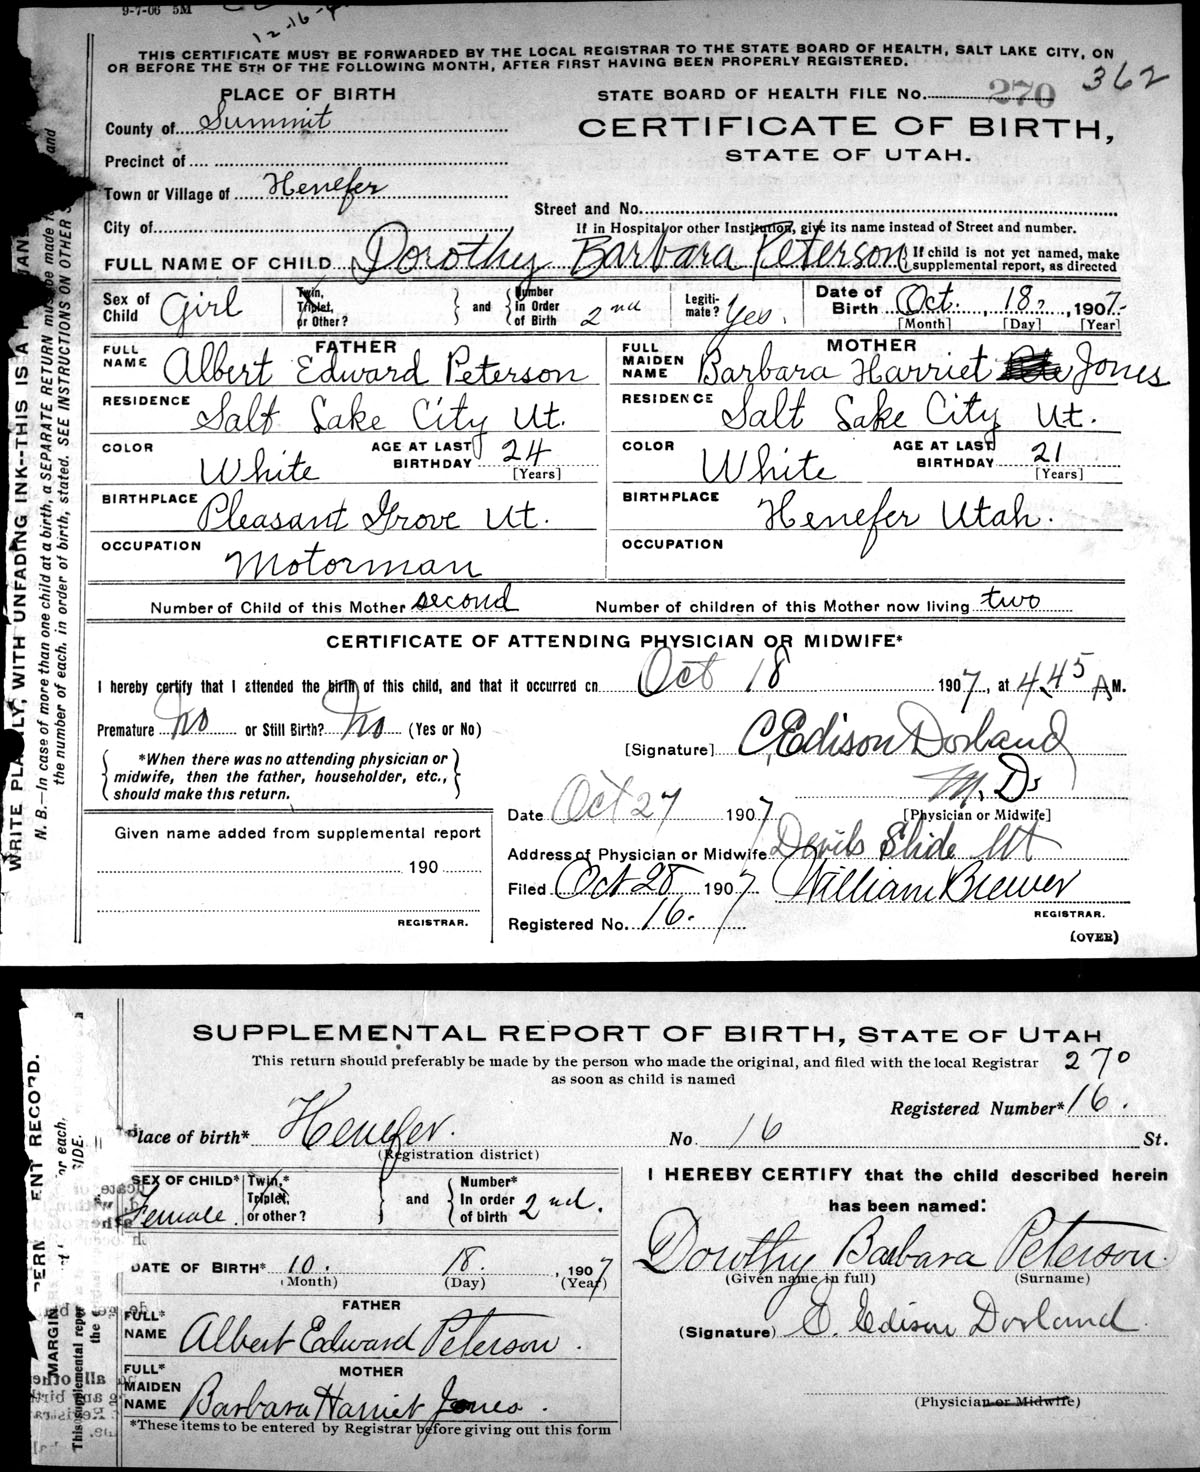 9-7-06 5M
12-16-
THIS CERTIFICATE MUST BE FORWARDED BY THE LOCAL REGISTRAR TO THE STATE BOARD OF HEALTH, SALT LAKE CITY, ON
OR BEFORE THE 5TH OF THE FOLLOWING MONTH, AFTER FIRST HAVING BEEN PROPERLY REGISTERED.
362
PLACE OF BIRTH
STATE BOARD OF HEALTH FILE No. 270
County of Summit
CERTIFICATE OF BIRTH,
STATE OF UTAH.
Precinct of
Town or Village of Henefer
Street and No.
City of
If in Hospital or other Institution, give its name instead of Street and number.
FULL NAME OF CHILD Dorothy Barbara Peterson { If child is not yet named, make supplemental report, as directed
Sex of Child Girl Twin, Triplet, or Other? } and { Number in Order of Birth 2nd Legiti-mate? Yes. Date of Birth Oct. 18, 1907.
[Month] [Day] [Year]
FATHER MOTHER
FULL NAME Albert Edward Peterson FULL MAIDEN NAME Barbara Harriet Jones
RESIDENCE Salt Lake City Ut. RESIDENCE Salt Lake City Ut.
COLOR White AGE AT LAST BIRTHDAY 24 [Years] COLOR White AGE AT LAST BIRTHDAY 21 [Years]
BIRTHPLACE Pleasant Grove Ut. BIRTHPLACE Henefer Utah.
OCCUPATION Motorman OCCUPATION
Number of Child of this Mother second Number of children of this Mother now living two
CERTIFICATE OF ATTENDING PHYSICIAN OR MIDWIFE*
I hereby certify that I attended the birth of this child, and that it occurred on Oct 18 1907, at 4.45 A M.
Premature no or Still Birth? no (Yes or No)
[Signature] C. Edison Dorland
M. D.
[Physician or Midwife]
*When there was no attending physician or
midwife, then the father, householder, etc.,
should make this return.
Date Oct 27 1907
Given name added from supplemental report
190
REGISTRAR.
Address of Physician or Midwife Devils Slide Ut
Filed Oct 28 1907 William Brewer
REGISTRAR.
Registered No. 16.
(OVER)
WRITE PLAINLY, WITH UNFADING INK--THIS IS A
N. B.—In case of more than one child at a birth, a SEPARATE RETURN must be made
and
the number of each, in order of birth, stated. SEE INSTRUCTIONS ON OTHER
SUPPLEMENTAL REPORT OF BIRTH, STATE OF UTAH
This return should preferably be made by the person who made the original, and filed with the local Registrar
as soon as child is named
270
Registered Number* 16.
Place of birth* Henefer. No. 16 St.
(Registration district)
SEX OF CHILD* Female. Twin,* Triplet, or other? } and { Number* In order of birth 2nd.
DATE OF BIRTH* 10. 18. , 1907
(Month) (Day) (Year)
FATHER
FULL* NAME Albert Edward Peterson.
MOTHER
FULL* MAIDEN NAME Barbara Harriet Jones.
*These items to be entered by Registrar before giving out this form
I HEREBY CERTIFY that the child described herein
has been named:
Dorothy Barbara Peterson.
(Given name in full) (Surname)
(Signature) C. Edison Dorland
(Physician or Midwife)
ENT RECORD.
MARGIN
This supplemental repor